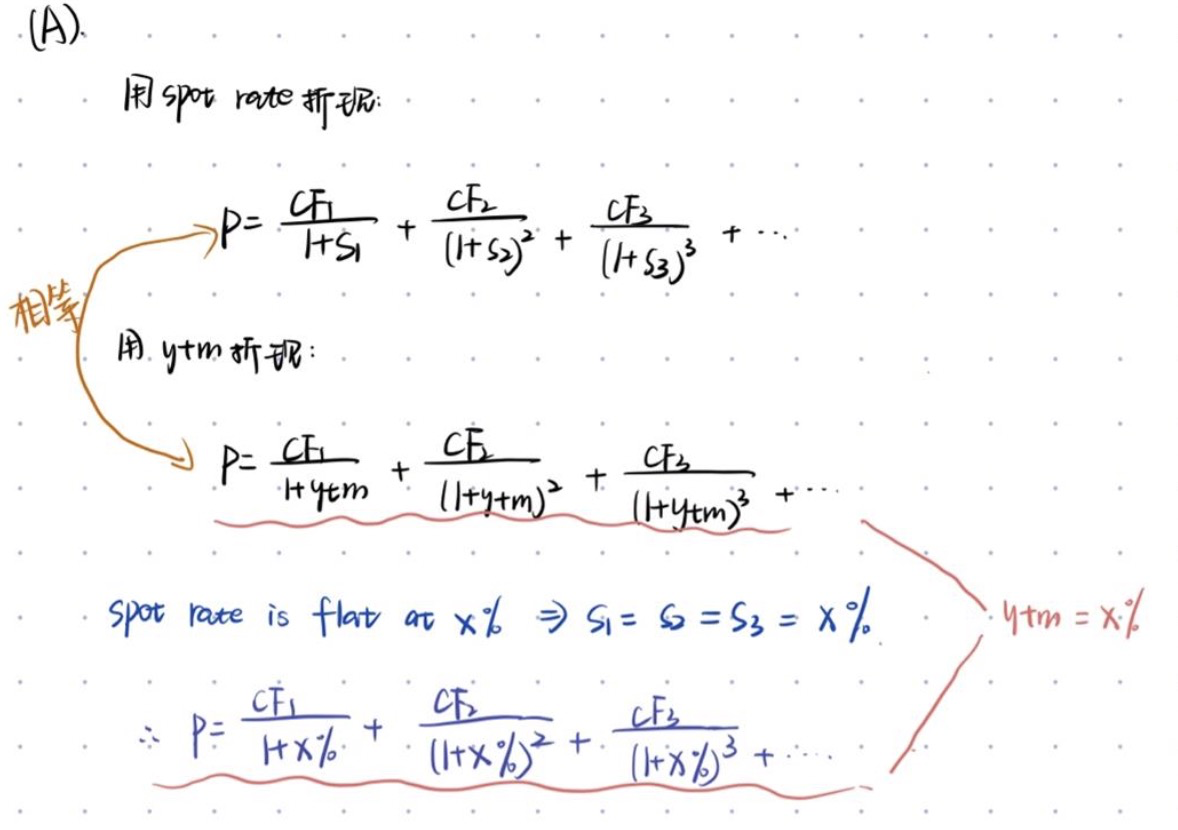 (A).
用 spot rate 折现:
P = CF₁/(1+S₁) + CF₂/(1+S₂)² + CF₃/(1+S₃)³ + ...
相等
用 ytm 折现:
P = CF₁/(1+ytm) + CF₂/(1+ytm)² + CF₃/(1+ytm)³ + ...
spot rate is flat at x% ⇒ S₁ = S₂ = S₃ = x%
ytm = x%
∴ P = CF₁/(1+x%) + CF₂/(1+x%)² + CF₃/(1+x%)³ + ....